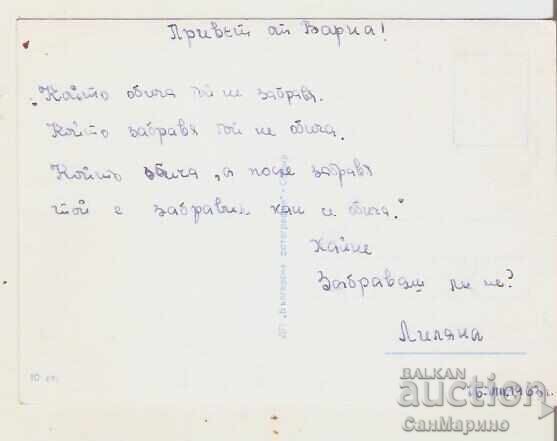 Привет от Варна!
„Който обича той не забравя.
Който забравя той не обича.
Който обича, а после забравя
той е забравил как се обича."
Хайне
Забравяш ли ме?
Лиляна
ДП „Българска фотография" - София
10 ст.
BALKAN
auction
СанМарино